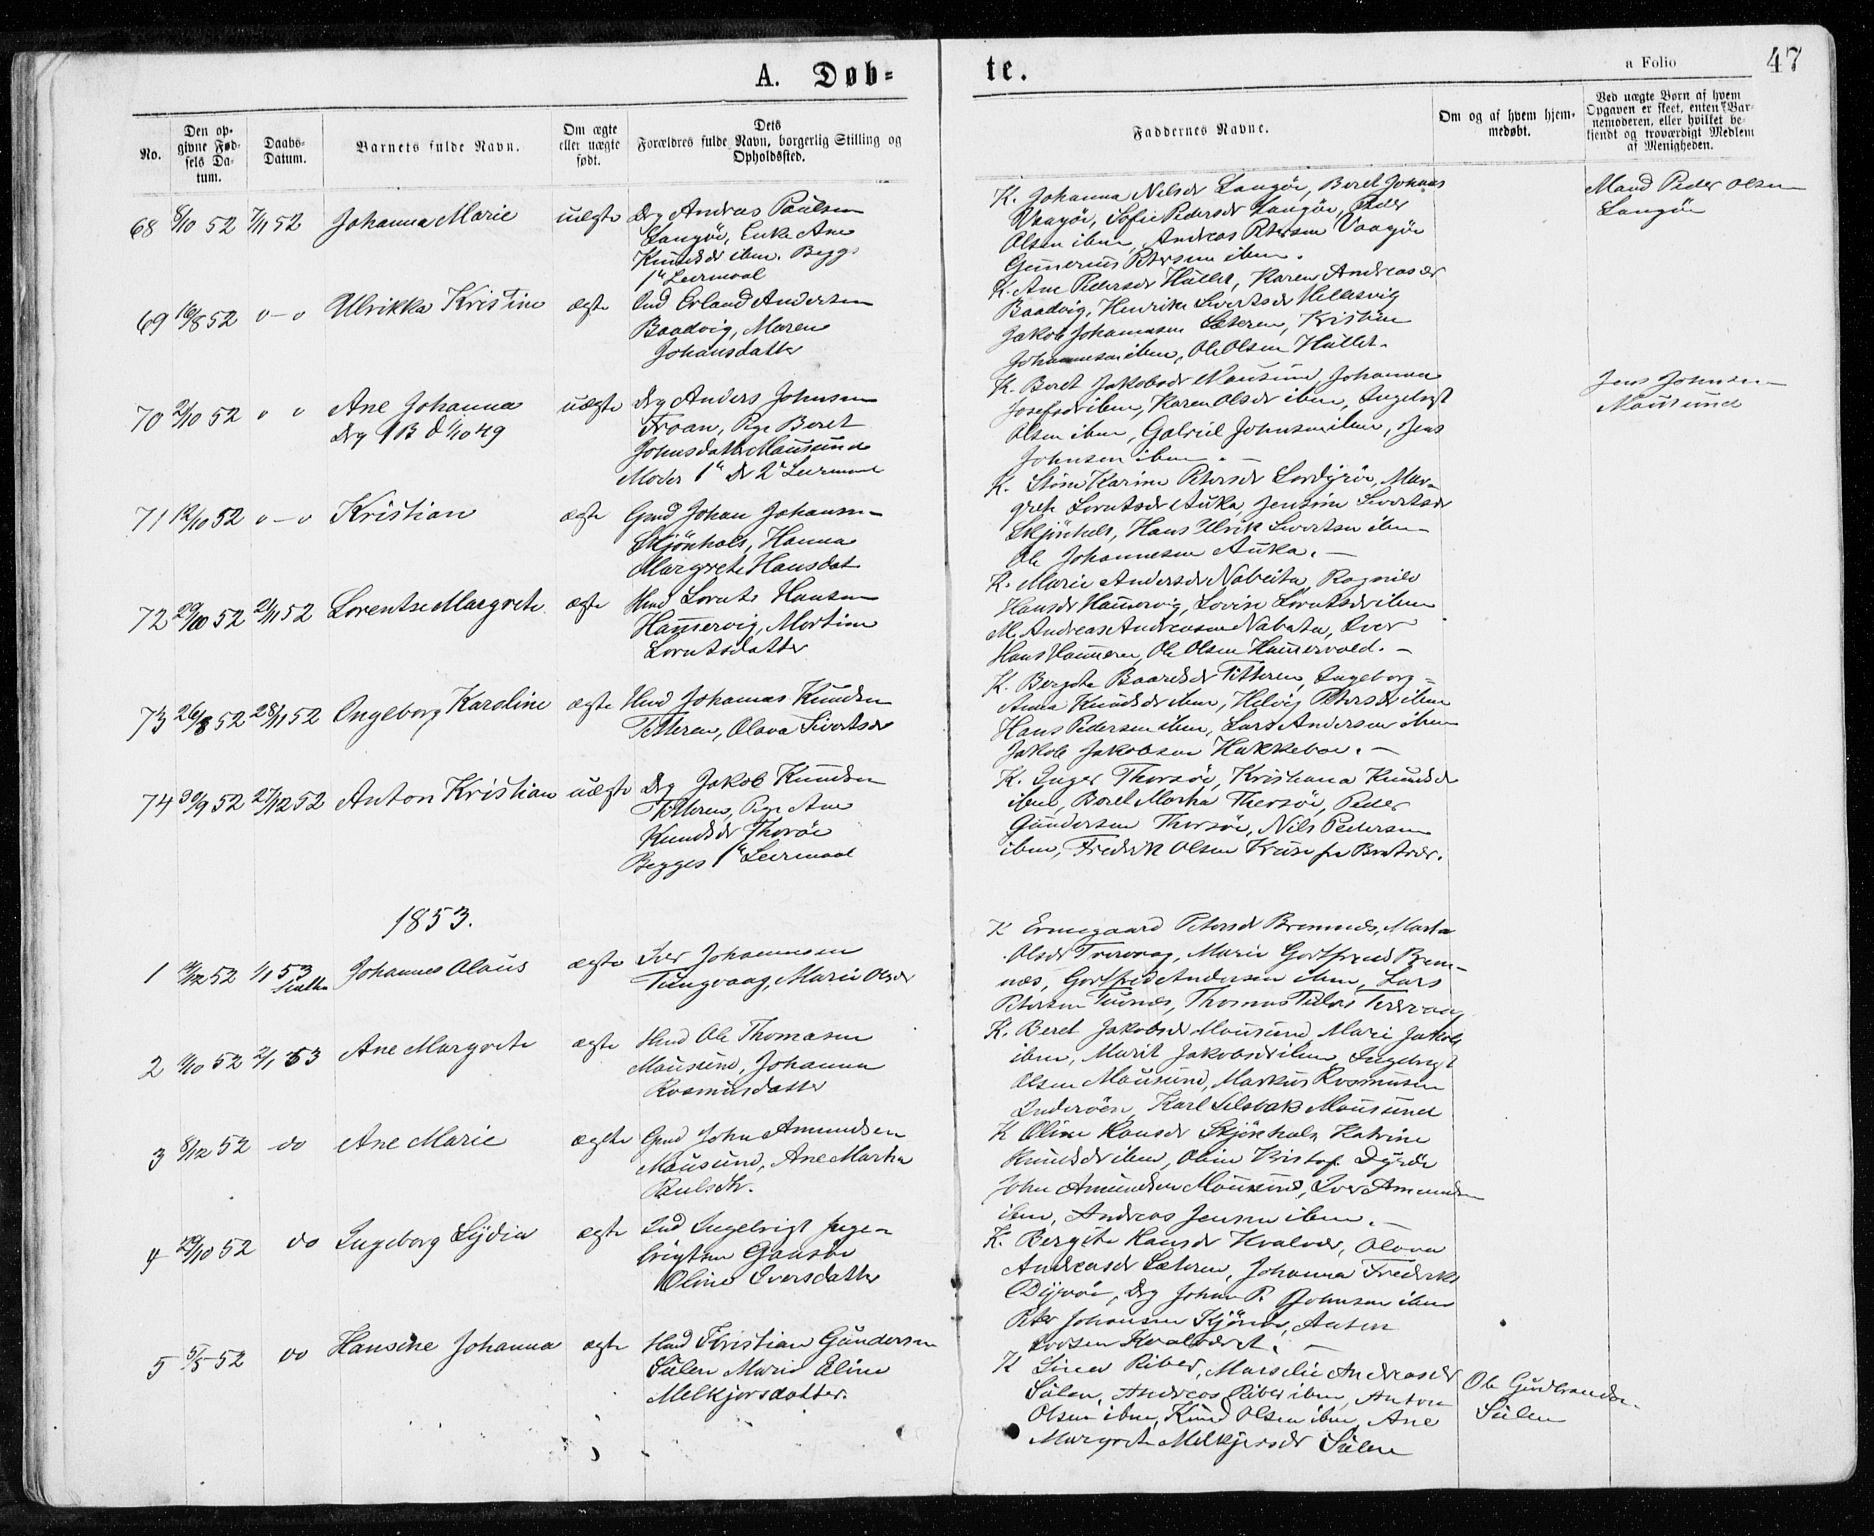 A. Døb-
te.
a Folio
47
No.
Den op-
givne Fød-
sels Da-
tum.
Daabs-
Datum.
Barnets fulde Navn.
Om ægte
eller uægte
født.
Dets
Forældres fulde Navn, borgerlig Stilling og
Opholdssted.
Faddernes Navne.
Om og af hvem hjem-
medøbt.
Ved uægte Børn af hvem
Opgaven er skeet, enten Bar-
nemoderen, eller hvilket be-
kjendt og troværdigt Medlem
af Menigheden.
68 8/10 52 7/11 52 Johanna Marie uægte Drg Andreas Paulsen
Langøe, Enke Ane
Knudsdr ibm. Begg.
1te Leiermaal
K. Johanna Nilsdr Langøe, Beret Johans
Vaagøe, Sofie Pedersdr Langøe, Peder
Olsen ibm, Andreas Petersen Vaagøe
Gunerius Petersen ibm.
Mand Peder Olsen
Langøe
69 16/8 52 o-o Ulrikka Kristine ægte Ind Erland Andersen
Baadvig, Maren
Johansdatter
K. Ane Pedersdr Hallet, Karen Andreasdr
Baadvig, Henrikke Sivertsdr Hellesvig
Jakob Johannesen Sæteren, Kristine
Johannesen ibm, Ole Olsen Hallet.
70 2/10 52 o o Ane Johanna uægte Drg Anders Johnsen
Drg 1 B d 1/10 49
Froan, Pige Beret
Johnsdatter Mausund
Moder 1te Dr 2te Leiermaal
K. Beret Jakobsdr Mausund, Johanna
Josefsdr ibm, Karen Olsdr ibm, Ingebrigt
Olsen ibm, Gabriel Johnsen ibm, Jens
Johnsen ibm.
Jens Johnsen
Mausund
71 12/10 52 o-o Kristian ægte Gmd Johan Johansen
Skjönhals, Hanna
Margrete Hansdat
K. Karine Petersdr, Mar-
grete Lorntsdr Auka, Jensine Sivertsdr
Skjönhals, Hans Ulrik Sivertsen ibm
Ole Johannesen Auka.
72 20/10 52 21/11 52 Lorentse Margrete ægte Hmd Lornts Hansen
Hammervig, Martine
Lorntsdatter
K. Marie Andersdr Nabeita, Ragnild
Hansdr Hammervig, Lovise Lorntsdr ibm
M. Andreas Andreasen Nabeita, Iver
Hans Hammeren, Ole Olsen Hammervold.
73 26/8 52 28/11 52 Ingeborg Karoline ægte Hmd Johannes Knudsen
Titteren, Olava Sivertsdr
K. Bergete Baardsdr Titteren, Ingeborg
Anna Knudsdr ibm, Helvig Petersdr ibm
Hans Pedersen ibm, Lars Andersen ibm
Jakob Jakobsen Hakkeboe.
74 30/9 52 27/12 52 Anton Kristian uægte Drg Jakob Knudsen
Titteren, Pige Ane
Knudsdr Thorøe
Begges 1te Leiermaal
K. Inger Thorsøe, Kristiana Knudsdr
ibm, Beret Marta Thorsøe, Peder
Gundersen Thorsøe, Nils Pedersen
ibm, Fredrik Olsen Kruse fra Bratvær.
1853.
1 4/12 52 1/1 53 Johannes Olaus ægte Iver Johannesen
Tungvaag, Marie Olsdr
K Ermegaard Petersdr Bremnes, Marta
Olsdr, Marie Gottfried Brem-
næs, Gottfried Andersen ibm, Lars
Petersen, Thomas
2 4/10 52 2/1 53 Ane Margrete ægte Hmd Ole Thomasen
Mausund, Johanna
Rasmusdatter
K. Beret Jakobsdr Mausund, Marie Jakobs
ibm, Marit Jakobsdr ibm, Ingebrigt
Olsen Mausund, Markus Rasmusen
Inderøen, Karl Selsbak Mausund
3 8/12 52 do Ane Marie ægte Gmd John Amundsen
Mausund, Ane Martha
Paulsdtr.
K Oline Hansdr Skjönhals, Katrine
Knudsdr ibm, Oline Kristof. Dyrøe
John Amundsen Mausund, Iver Amundsen
ibm, Andreas Jensen ibm.
4 29/10 52 do Ingeborg Lydia ægte Ind Ingebrigt Inge-
brigtsen Gaasøe
Oline Iversdatter
K. Bergite Hansdr Kvalvær, Olava
Andreasdr Sæteren, Johanna Fredriks
Dyrøe, Drg Johan P. Johnsen ibm
Peter Johansen, Anton
Kvalværet.
5 5/5 52 do Hansine Johanna ægte Hmd Kristian Gundersen
Sulen Marie Eline
Melkjorsdatter.
K Sina Riber, Marselie Andreasdr
Sulen, Andreas Riber ibm, Anton
Olsen ibm, Knud Olsen ibm, Ane
Margrete Melkjorsdr Sulen
Ole Gudbrandsen
Sulen